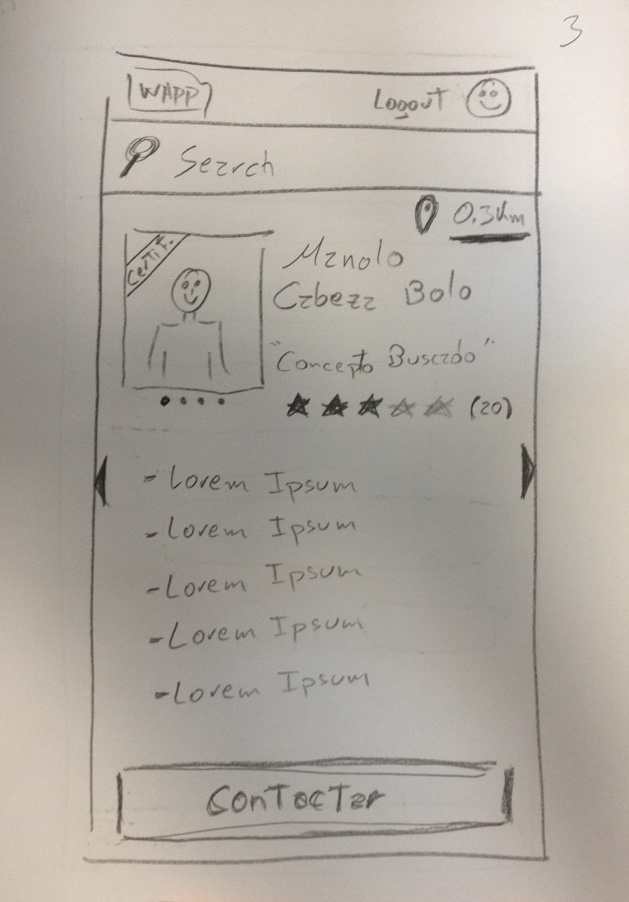 3
WAPP
Logout
Search
0.3Km
Certif.
Manolo
Cabeza Bolo
"Concepto Buscado"
(20)
- Lorem Ipsum
- Lorem Ipsum
- Lorem Ipsum
- Lorem Ipsum
- Lorem Ipsum
Contactar